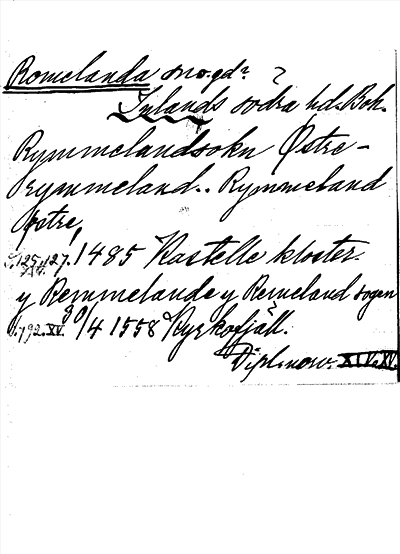 Romelanda sn o. gd ?
Inlands södra hd. Boh.
Rymmelandsokn Østre-
rymmeland.. Rymmeland
østre,
s. 125, 127. XIV. 1485 Kastelle kloster.
y Remmelande y Remeland sogen
s. 792. XV. 30/4 1558 Kyrkofjäll.
Dipl. norv. XIV. XV.